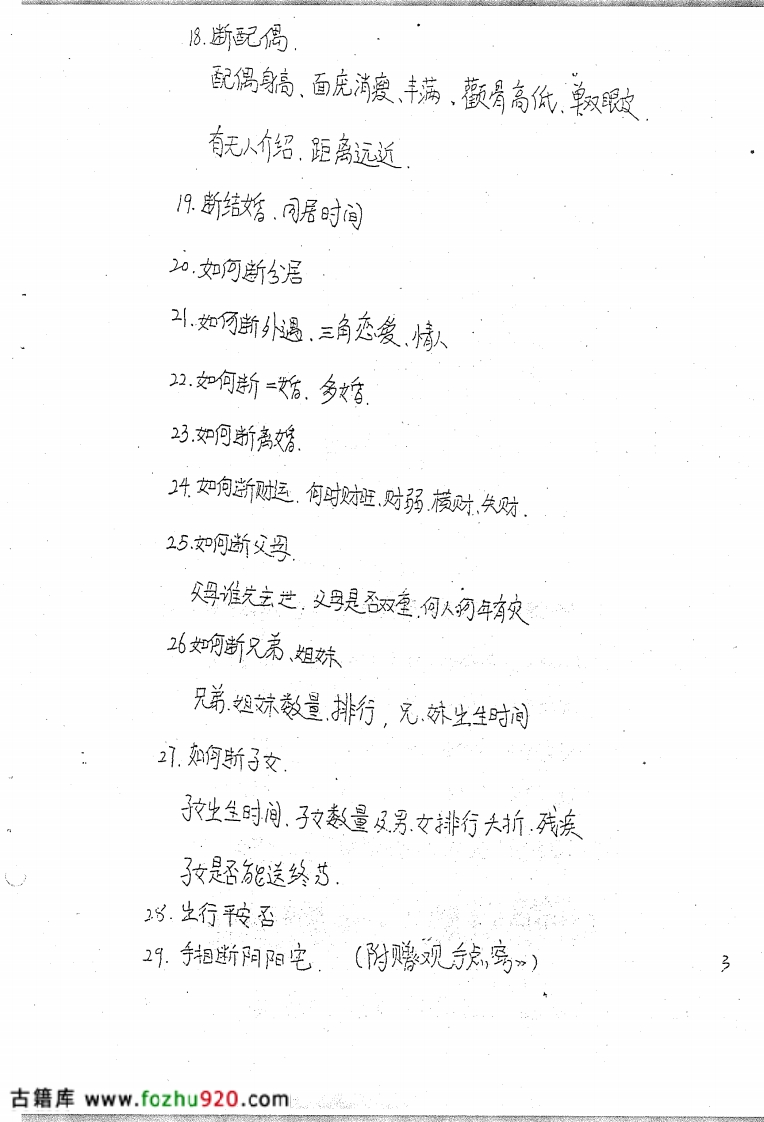 18.断配偶.
配偶身高、面庞消瘦、丰满、颧骨高低、单双眼皮.
有无人介绍.距离远近.
19.断结婚、同居时间
20.如何断分居
21.如何断外遇、三角恋爱、情人
22.如何断二婚、多婚.
23.如何断离婚.
24.如何断财运.何时财旺、财弱.横财、失财.
25.如何断父母.
父母谁先去世.父母是否双重.何人何年有灾
26如何断兄弟、姐妹
兄弟.姐妹数量.排行,兄.妹出生时间
27.如何断子女.
子女出生时间.子女数量及男.女排行夭折.残疾
子女是否能送终等.
28.出行平安否
29.手相断阴阳宅.(附赠《观手点窍》)
3
古籍库 www.fozhu920.com